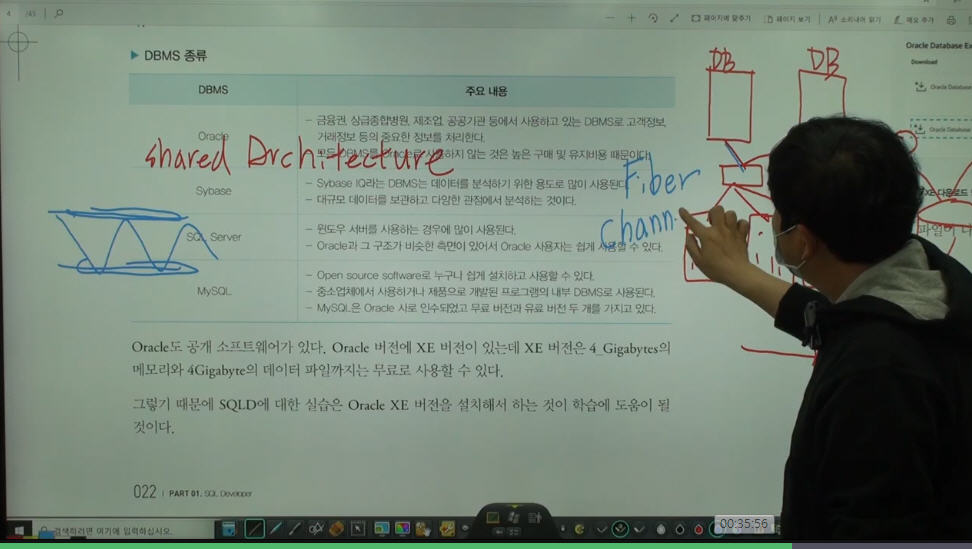 4 /45
페이지에 맞추기 페이지 보기 소리내어 읽기 메모 추가
Oracle Database Ex
Download
Oracle Database
Oracle Database
▶ DBMS 종류
DBMS 주요 내용
Oracle
– 금융권, 상급종합병원, 제조업, 공공기관 등에서 사용하고 있는 DBMS로 고객정보,
거래정보 등의 중요한 정보를 처리한다.
– 모든 DBMS를 Oracle로 사용하지 않는 것은 높은 구매 및 유지비용 때문이다.
Sybase
– Sybase IQ라는 DBMS는 데이터를 분석하기 위한 용도로 많이 사용된다.
– 대규모 데이터를 보관하고 다양한 관점에서 분석하는 것이다.
SQL Server
– 윈도우 서버를 사용하는 경우에 많이 사용된다.
– Oracle과 그 구조가 비슷한 측면이 있어서 Oracle 사용자는 쉽게 사용할 수 있다.
MySQL
– Open source software로 누구나 쉽게 설치하고 사용할 수 있다.
– 중소업체에서 사용하거나 제품으로 개발된 프로그램의 내부 DBMS로 사용된다.
– MySQL은 Oracle 사로 인수되었고 무료 버전과 유료 버전 두 개를 가지고 있다.
shared Architecture
DB DB
Fiber
Chann
XE 다운로드
파일이 나
Oracle도 공개 소프트웨어가 있다. Oracle 버전에 XE 버전이 있는데 XE 버전은 4_Gigabytes의
메모리와 4Gigabyte의 데이터 파일까지는 무료로 사용할 수 있다.
그렇기 때문에 SQLD에 대한 실습은 Oracle XE 버전을 설치해서 하는 것이 학습에 도움이 될
것이다.
022 | PART 01. SQL Developer
검색하려면 여기에 입력하십시오.
00:35:56